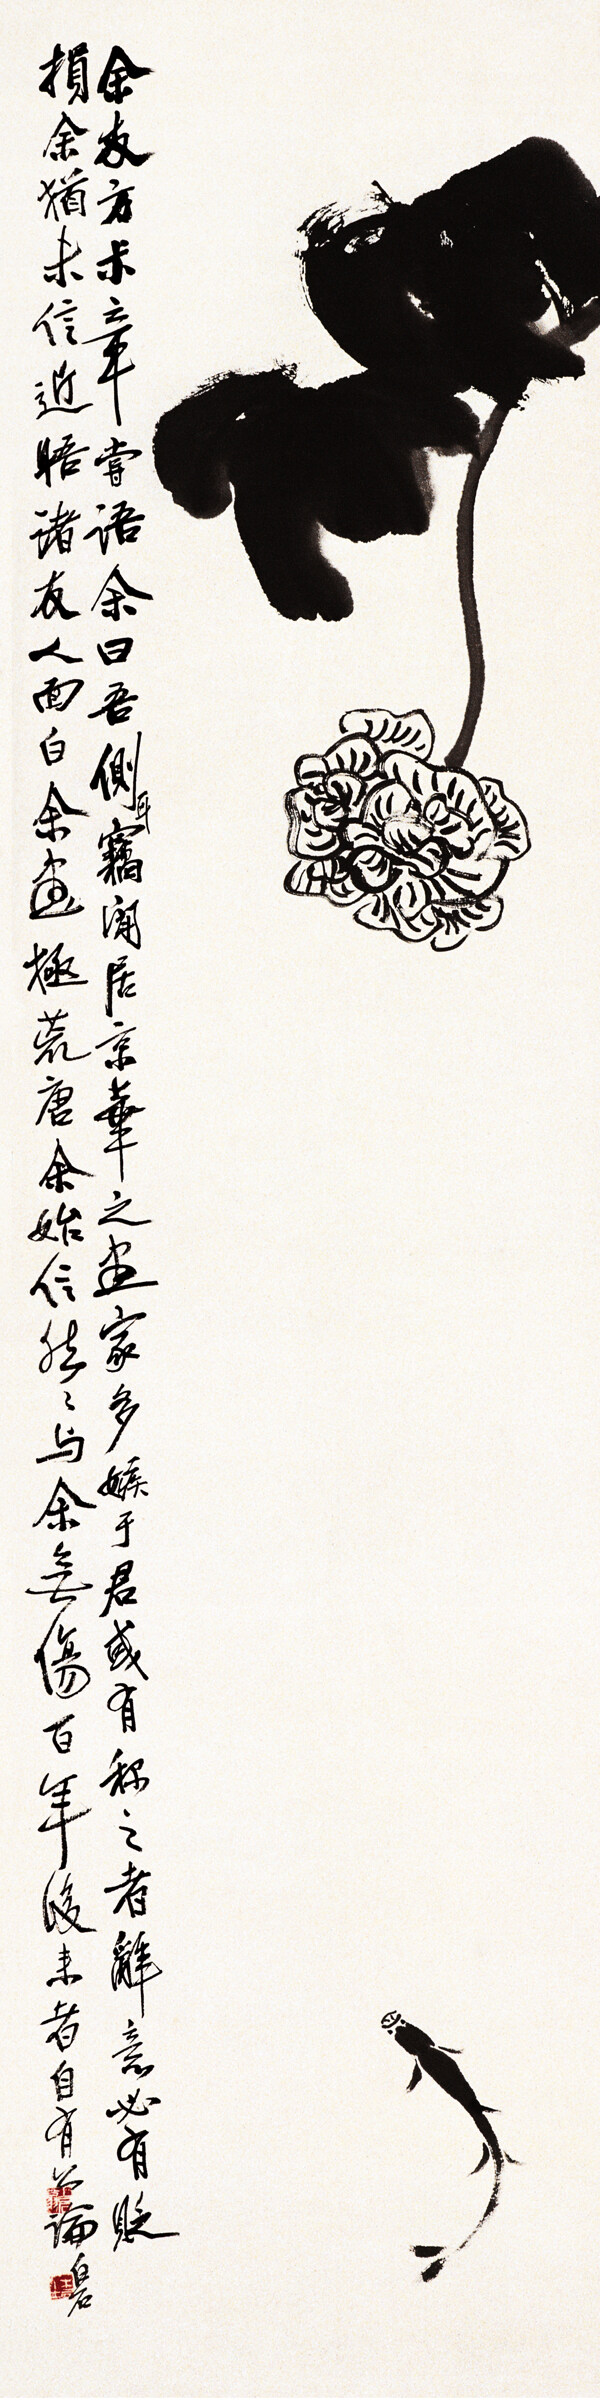 余友方叔章尝语余曰吾側耳竊闻居京華之画家多嫉于君或有称之者辭意必有貶
損余猶未信近晤诸友人面白余画極荒唐余始信然然与余無傷百年後来者自有公論白石